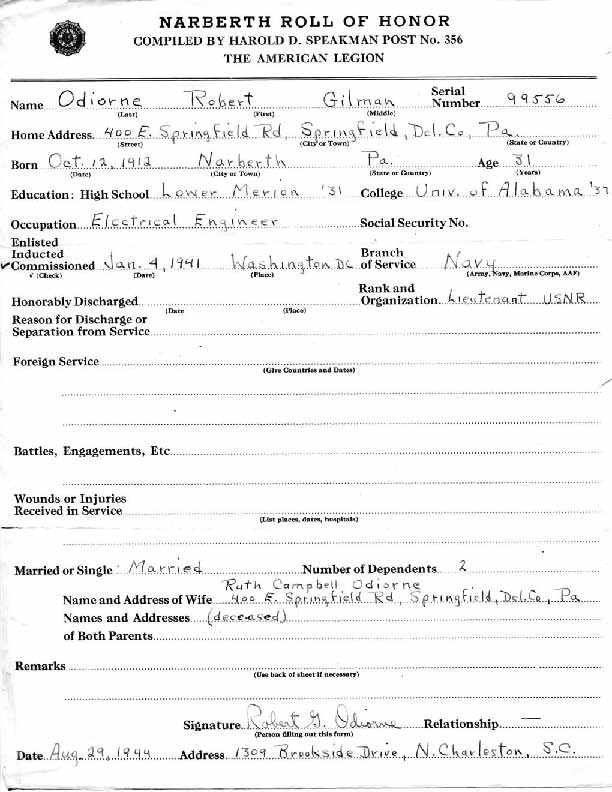 NARBERTH ROLL OF HONOR
COMPILED BY HAROLD D. SPEAKMAN POST No. 356
THE AMERICAN LEGION
Name Odiorne Robert Gilman Serial Number 99556
(Last) (First) (Middle)
Home Address. 400 E. Springfield Rd, Springfield, Del. Co, Pa.
(Street) (City or Town) (State or Country)
Born Oct. 12, 1912 Narberth Pa. Age 31
(Date) (City or Town) (State or Country) (Years)
Education: High School Lower Merion '31 College Univ. of Alabama '37
Occupation Electrical Engineer Social Security No.
Enlisted
Inducted
✓Commissioned Jan. 4, 1941 Washington DC Branch of Service Navy
√ (Check) (Date) (Place) (Army, Navy, Marine Corps, AAF)
Honorably Discharged Rank and Organization Lieutenant USNR
(Date (Place)
Reason for Discharge or
Separation from Service
Foreign Service
(Give Countries and Dates)
Battles, Engagements, Etc
Wounds or Injuries
Received in Service
(List places, dates, hospitals)
Married or Single Married Number of Dependents 2
Ruth Campbell Odiorne
Name and Address of Wife 400 E. Springfield Rd, Springfield, Del. Co, Pa
Names and Addresses (deceased)
of Both Parents
Remarks
(Use back of sheet if necessary)
Signature Robert G. Odiorne Relationship —
(Person filling out this form)
Date Aug. 29, 1944 Address 1309 Brookside Drive, N. Charleston, S.C.